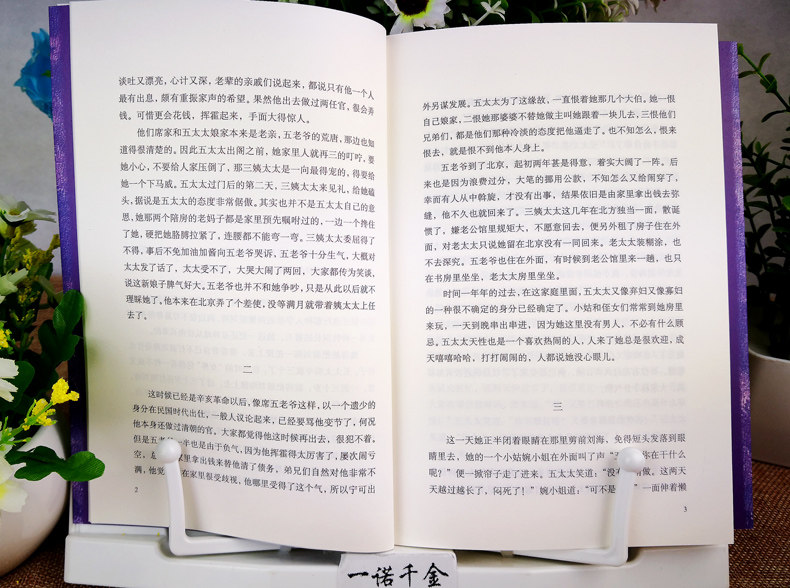 谈吐又漂亮，心计又深，老辈的亲戚们说起来，都说只有他一个人
最有出息，颇有重振家声的希望。果然他出去做过两任官。很会弄
钱。可惜更会花钱，挥霍起来，手面大得惊人。
他们席家和五太太娘家本来是老亲，五老爷的荒唐，那边也知
道得很清楚的。因此五太太出阁之前，她家里人就再三的叮咛，要
她小心，不要给人家压倒了，那三姨太太是一向最得宠的，得要给
她一个下马威。五太太过门后的第二天，三姨太太来见礼，给她磕
头，据说是五太太的态度非常倨傲。其实也并不是五太太自己的意
思，她那两个陪房的老妈子都是家里预先嘱咐过的，一边一个搀住
了她，硬把她胳膊拉紧了，连腰都不能弯一弯。三姨太太委屈得了
不得，事后不免加油加酱向五老爷哭诉，五老爷十分生气，大概对
太太发了话了，太太受不了，大哭大闹了两回，大家都传为笑谈，
说这新娘子脾气好大。五老爷也并不和她争吵，只是从此以后就不
理睬她了。他本来在北京弄了个差使，没等满月就带着姨太太上任
去了。
二
这时候已经是辛亥革命以后，像席五老爷这样，以一个遗少的
身分在民国时代出仕，一般人议论起来，已经要骂他变节了，何况
他本身还做过清朝的官。大家都觉得他这时候再出去，很犯不着。
但是五老爷一半也是由于负气，因为他挥霍得太厉害了，屡次闹亏
空，总是家里拿出钱来替他清了债务，弟兄们自然对他非常不
满，他觉得在家里很受歧视，他哪里受得了这个气，所以宁可出
2
外另谋发展。五太太为了这缘故，一直恨着她那几个大伯。她一恨
自己娘家，二恨她那婆婆不替她做主叫她跟着一块儿去，三恨他们
兄弟们，都是他们那种冷淡的态度把他逼走了。也不知怎么，恨来
恨去，就是恨不到他本人身上。
五老爷到了北京，起初两年甚是得意，着实大阔了一阵。后
来也是因为浪费过分，大笔的挪用公款，不知怎么又给闹穿了，
幸而有人从中斡旋，才没有出事，结果依旧是由家里拿出钱去弥
缝，他不久也就回来了。三姨太太这几年在北方独当一面，散诞
惯了，嫌老公馆里规矩大，不愿意回去，便另外租了房子住在外
面，对老太太只说她留在北京没有一同回来。老太太装糊涂，也
不去深究。五老爷也住在外面，有时候到老公馆里来一趟，也只
在书房里坐坐，老太太房里坐坐。
时间一年年的过去，在这家庭里面，五太太又像弃妇又像寡妇
的一种很不确定的身分已经确定了。小姑和侄女们常常到她房里
来玩，一天到晚串出串进，因为她这里没有男人，不必有什么顾
忌。五太太天性也是一个喜欢热闹的人，人来了她总是很欢迎，成
天嘻嘻哈哈，打打闹闹的，人都说她没心眼儿。
三
这一天她正半闭着眼睛在那里剪前刘海，免得短头发落到眼
睛里去，她的一个小姑婉小姐在外面叫了声“五嫂，你在干什么
呢？”便一掀帘子走了进来。五太太笑道：“没有事情做。这两天
天越过越长了，闷死了！”婉小姐道：“可不是！”一面伸着懒
3
一诺千金